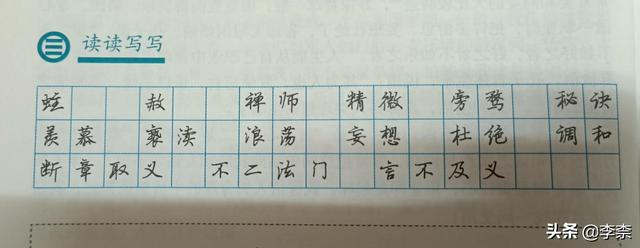 读读写写
蛀 赦 禅师 精微 旁骛 秘诀
羡慕 亵渎 浪荡 妄想 杜绝 调和
断章取义 不二法门 言不及义
头条 @李柰